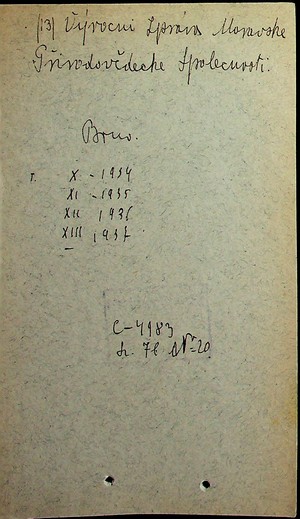 (13) Výrocni Zpráva Moravske
Přirodovědecke Společnosti.
Brno.
T. X - 1934
XI - 1935
XII 1936
XIII, 1937
C-4983
76 №-20